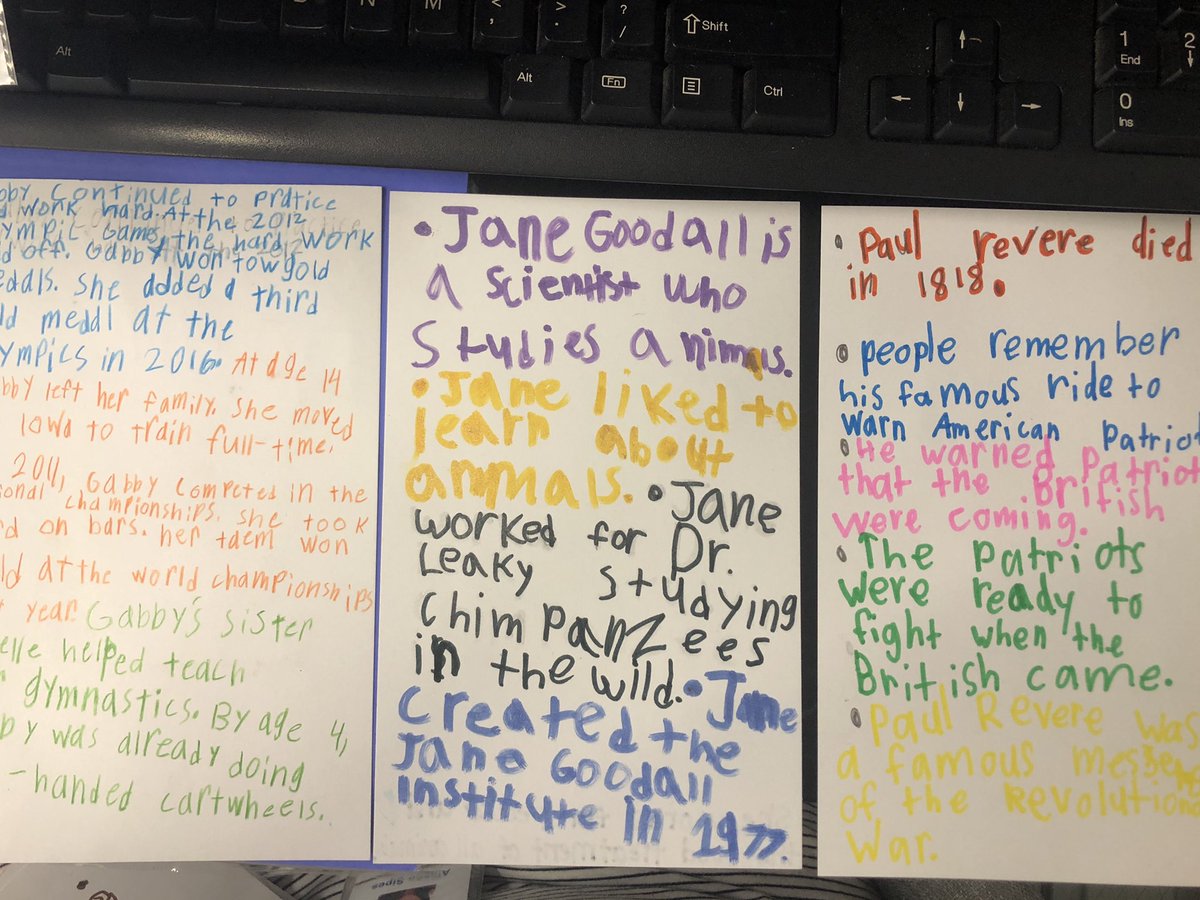 N
M
<
,
>
.
?
/
Shift
Alt
Alt
Fn
Ctrl
1
End
2
0
Ins
bby continued to pratice
d work hard. At the 2012
ympic Games, the hard work
d off. Gabby won tow gold
edals. She added a third
ld medal at the
ympics in 2016. At age 14
bby left her family. She moved
Iowa to train full-time.
2011, Gabby competed in the
ional championships. she took
rd on bars. her team won
ld at the world championships
t year. Gabby's sister
elle helped teach
gymnastics. By age 4,
by was already doing
-handed cartwheels.
• Jane Goodall is
a scientist who
Studies animals.
• Jane liked to
learn about
animals. • Jane
worked for Dr.
Leaky studying
Chimpanzees
in the wild. • Jane
created the
Jane Goodall
institute in 1977.
• Paul revere died
in 1818.
• people remember
his famous ride to
warn American patriot
• He warned patriot
that the British
were coming.
• The patriots
were ready to
fight when the
British came.
• Paul Revere was
a famous
of the Revolution
war.
Sipes